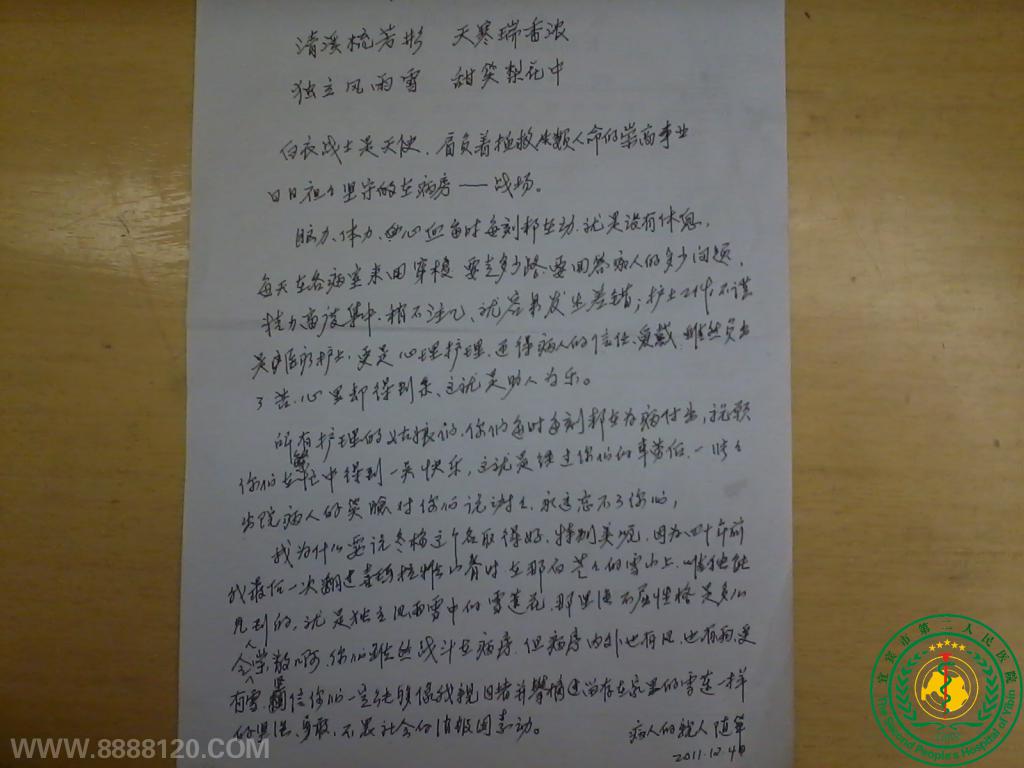 清溪梳若彤 天寒瑞香浓
独立风雨雪 甜笑梨花中
白衣战士是天使,肩负着拯救生颗人命的崇高事业
日日夜夜坚守的在病房——战场。
脑力、体力、心血每时每刻都在动,就是没有休息,
每天在各病室来回穿梭 要走多少路 要回答病人的多少问题,
精力高度集中,稍不注意,就容易发生差错;护士工作,不谨
是医疗护士,更是心理护理,还得病人的信任、爱戴,虽然负出
了苦,心里却得到乐、这就是助人为乐。
所有护理的姑娘们,你们每时每刻都在为病付出,祝愿
你们在繁忙中得到一点快乐,这就是经过你们的辛劳后,一张张
出院病人的笑脸对你们说谢谢,永远忘不了你们,
我为什么要说冬梅这个名取得好,特别美呢,因为四十年前
我最后一次翻过拉山脊时在那白茫茫的雪山上,唯独能
见到的,就是独立风雨雪中的雪莲花,那坚强不屈性格是多么
令人学敬啊,你们虽然战斗在病房,但病房内外也有风,也有雨,更
有雪,坚信你们一定能够像我亲眼目睹并攀摘过留存在家里的雪莲一样
的坚强、勇敢,不畏社会的消极因素动。
病人的亲人 随军
2011.12.4日
WWW.8888120.COM
宜宾市第二人民医院
The Second People's Hospital of Yibin